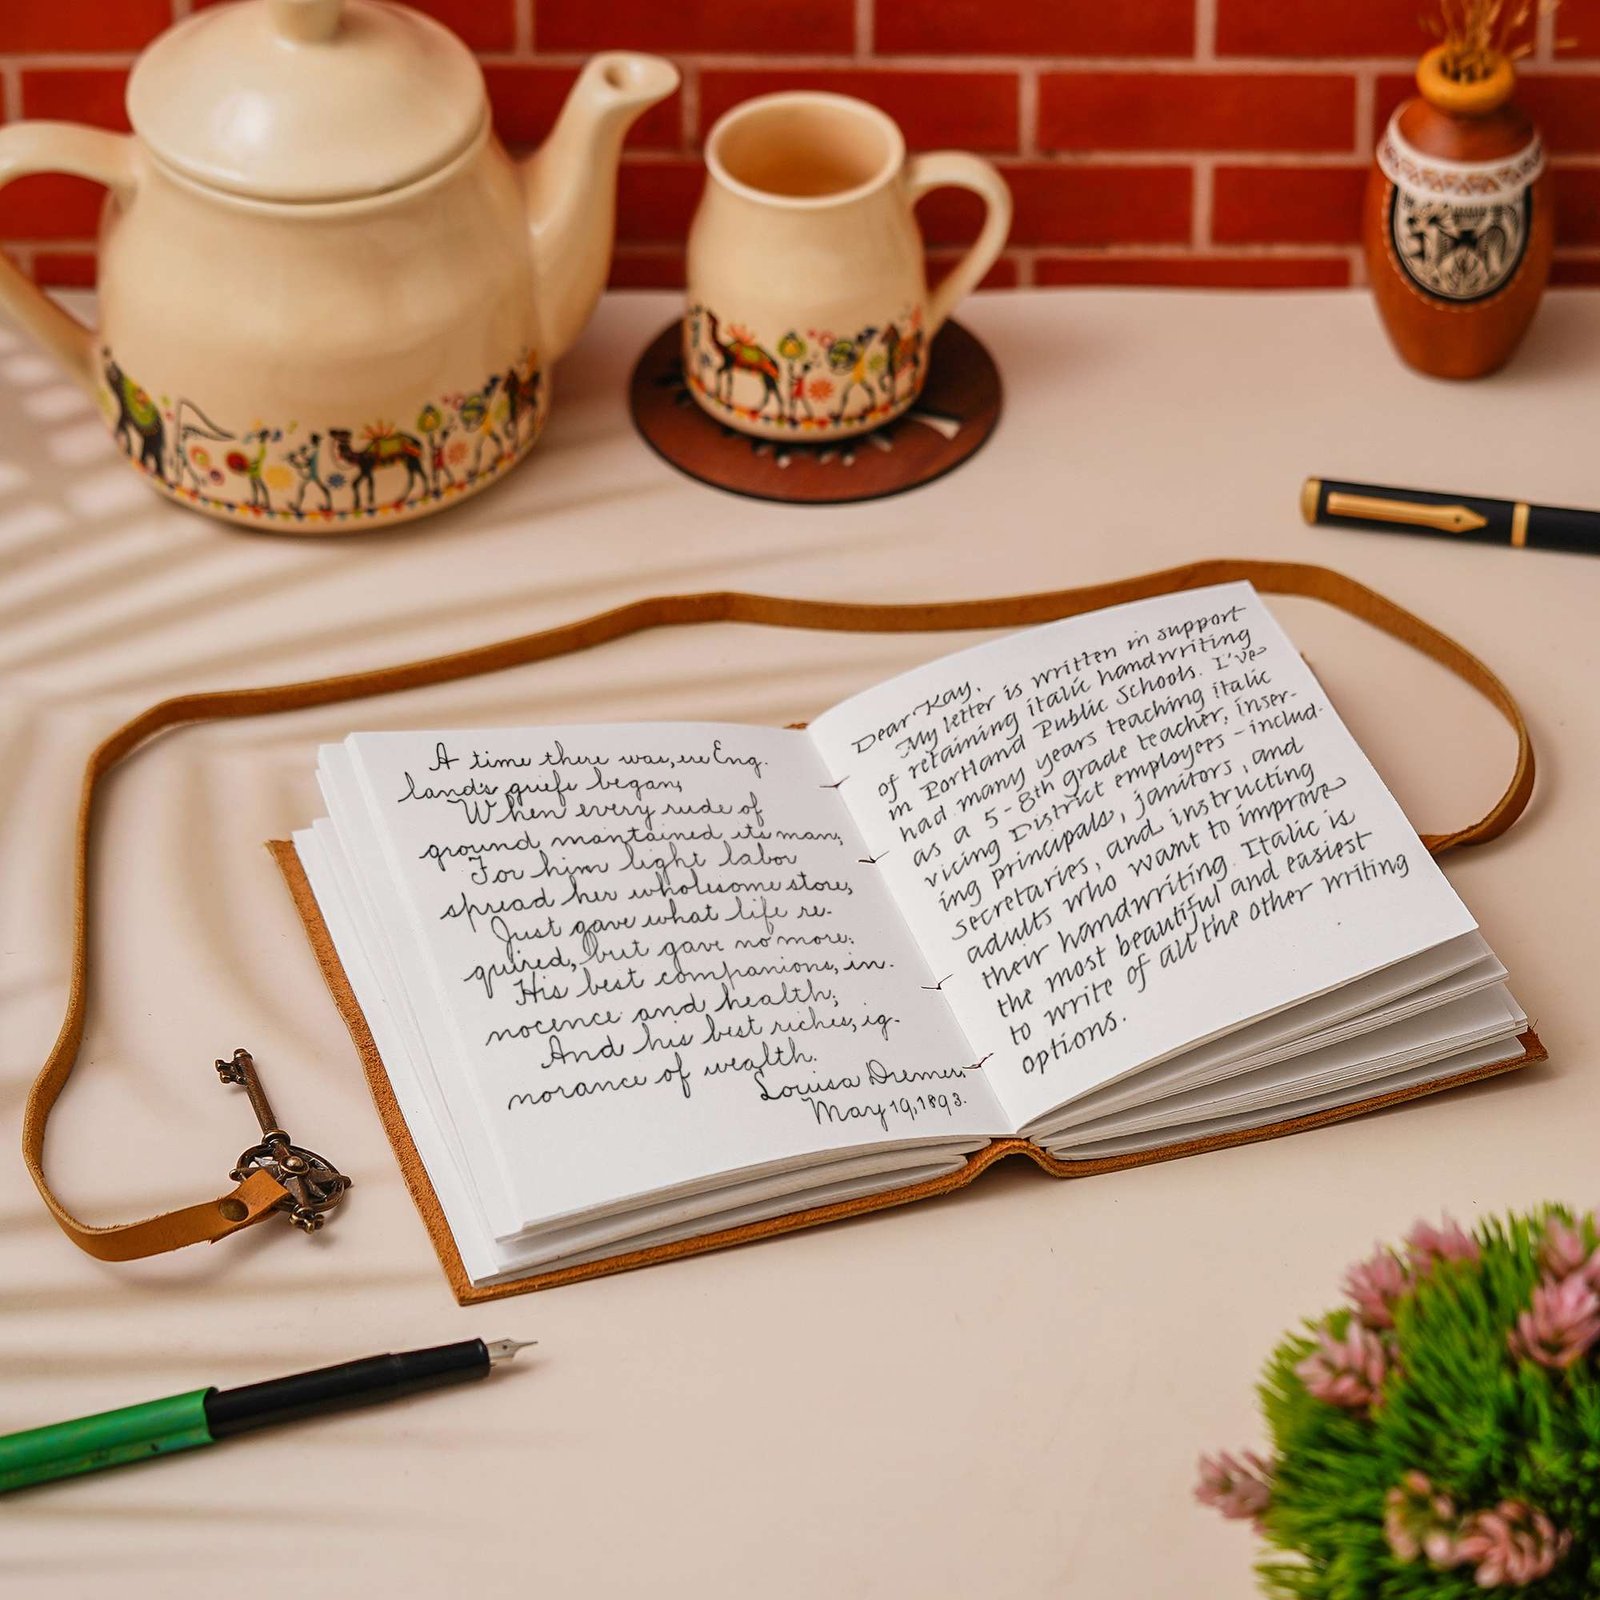 A time there was, ere Eng-
land's griefs began,
When every rude of
ground maintained its man;
For him light labor
spread her wholesome store,
Just gave what life re-
quired, but gave no more;
His best companions, in-
nocence and health;
And his best riches, ig-
norance of wealth.
Louisa Dremer.
May 19, 1893.
Dear Kay,
My letter is written in support
of retaining italic handwriting
in Portland Public Schools. I've
had many years teaching italic
as a 5-8th grade teacher, inser-
vicing District employees - includ-
ing principals, janitors, and
secretaries, and instructing
adults who want to improve
their handwriting. Italic is
the most beautiful and easiest
to write of all the other writing
options.